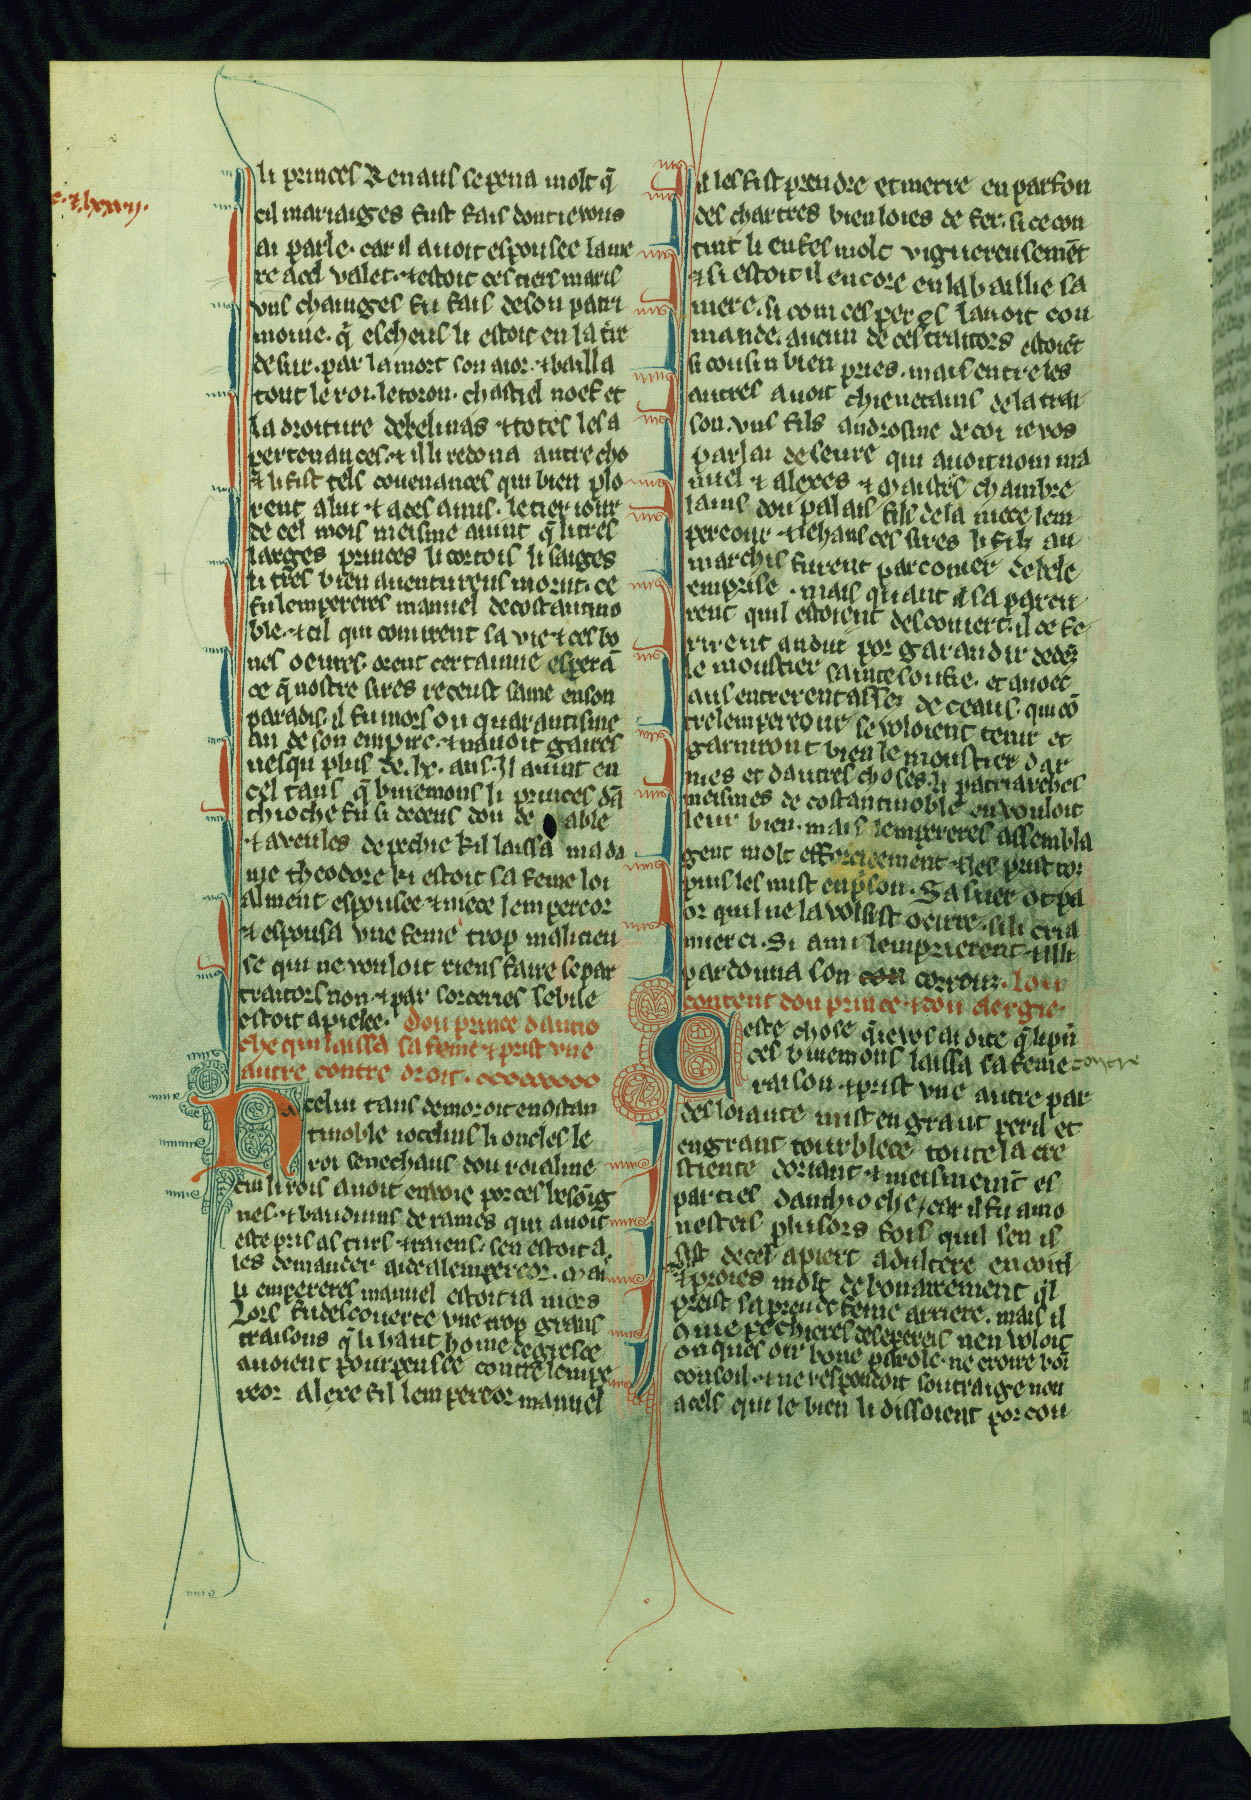 li princes Renaus se pena molt q̃
cil mariaiges fust fais dont ie vous
ai parle. car il auoit espousee la me
re a cel valet. ⁊ estoit ces tiers maris
vns chainges fu fais de son patri
moine. q̃ escheus li estoit en la tire
de sur. par la mort son aior. ⁊ bailla
tout le roi. le toron. chastiel noef et
la droiture de belinas ⁊ totes les a
pertenances. ⁊ il li redona autre cho
⁊ li fist tels couenances qui bien plo
rent a lui ⁊ a ces amis. le tier iour
de cel mois meisme auint q̃ li tres
larges princes li cortois li saiges
li tres bien auentureus morut. ce
fu lempereres manuel de costantino
ble. ⁊ cil qui connrent sa vie ⁊ ces bo
nes oeures. orent certainne esperā
ce q̃ nostre sires receust same en son
paradis. il fu mors ou quarantisme
an de son empire. ⁊ nauoit gaires
uesqu plus de .lx. ans. Il auint en
cel tans q̃ buiemons li princes dā
thioche fu si deceus dou deable
⁊ aveules de pechie kil laissa ma da
me theodore ki estoit sa feme loi
alment espousee ⁊ niece lempereor
⁊ espousa vne feme trop malicieu
se qui ne vouloit riens faire se par
traitors non. ⁊ par sorceries sebile
estoit apielee. Dou prince dantio
che qui laissa sa feme ⁊ prist vne
autre contre droit.
A celui tans demoroit en ostan
tinoble iocelins li oncles le
roi senechaus dou roialme
cui li rois auoit envoie por ces besoīg
nes. ⁊ bauduins de rames qui auoit
este pris as turs ⁊ raiens. sen estoit a
les demander aide a lempereor. Mai
li empereres manuel estoit ia mors
Lors fu descouerte vne trop grans
traisons q̃ li haut home de gresce
auoient pourpensee contre lempe
reor alexe fil lempereor manuel
il les fist prendre et metre en parfon
des chartres bien loies de fer. si ce con
tint li enfes molt viguereusemēt
⁊ si estoit il encore en la baillie sa
mere. si com ces peres lauoit con
mande. aucun de ces traitors estoiēt
si cousin bien pries. mais entre les
autres auoit chieuetains de la trai
son. vns fils androsine de coi ie vos
parlai deseure qui auoit nom ma
nuel ⁊ alexes ⁊ maistres chambre
lains dou palais fils de la niece lem
pereour ⁊ iehans ces sires li fils an
marchis furent parconier de bele
emprise. mais quant il saparcu
rent quil estoient descouert. il ce fe
rirent andui por garandir dedēs
le moustier sainte soufie. et auoec
aus entrerent assez de ceaus. qui cō
tre lempereour se voloient tenir et
garnirent bien le moustier dar
mes et dautres choses. li patriarches
meismes de costantinoble en vouloit
leur bien. mais lempereres assembla
gent molt efforciement ⁊ les prist tor
puis les mist en pison. Sa suer ot pa
or quil ne la volsist ocirre. si li cria
merci. Si ami lemprierent ⁊ il li
pardonna son con corrouz. Lou
content dou prince ⁊ dou clergie.
Ceste chose q̃ ie vos ai dite q̃ li pñ
ces buiemons laissa sa feme contre
raison ⁊ prist vne autre par
desloiaute mist en grant peril et
en grant tourblece toute la cre
stiente doriant. ⁊ meismemt̄ es
parties danthioche. car il fu amo
nestes plusors fois quil sen is
sist de cel apiert adultere en coi il
⁊ proies molt debonairement q̃l
preist sa preude feme arriere. mais il
come pechieres desesperes nen voloit
onques oir bone parole. ne croire boī
consoil. ⁊ ne respondoit sontraige non
a cels qui le bien li dissoient por cou